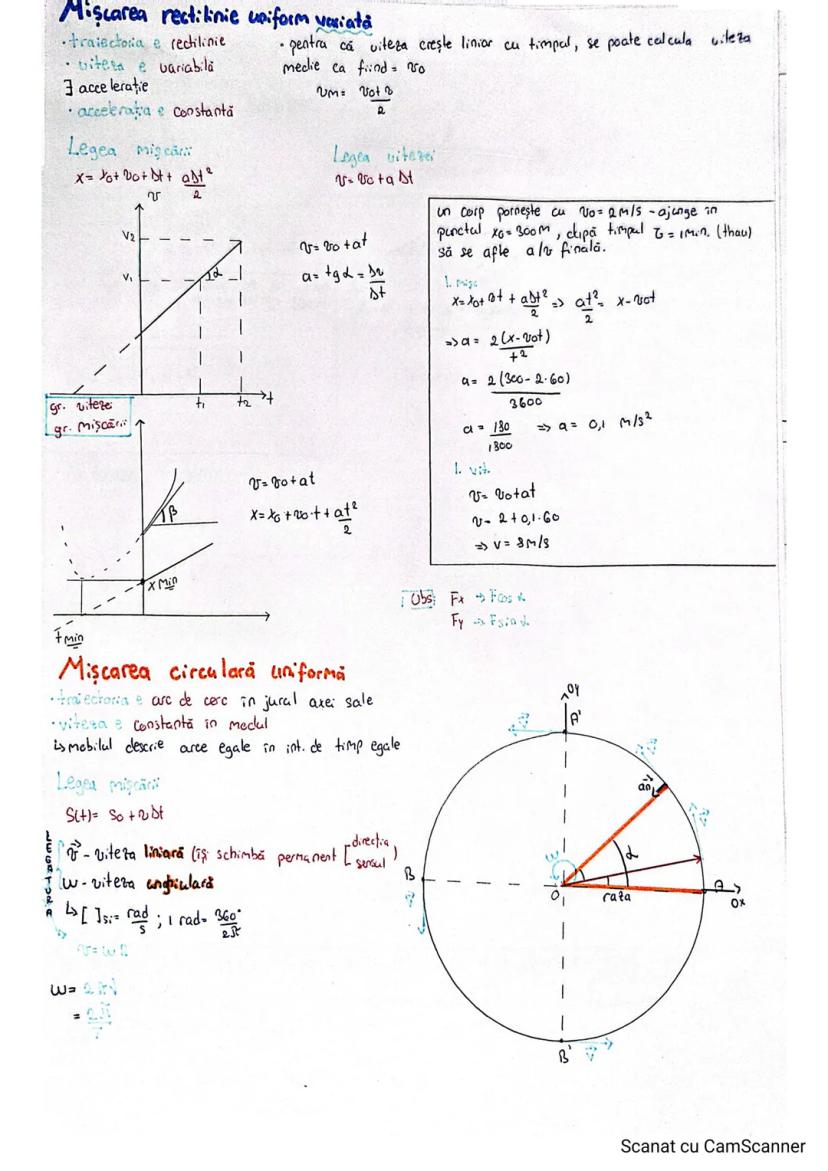 Mișcarea rectilinie uniform variată
• traiectoria e rectilinie
• viteza e variabilă
∃ accelerație
• accelerația e constantă
• pentru că viteza crește liniar cu timpul, se poate calcula viteza
medie ca fiind = v0
vm = v0+v/2
Legea mișcării
x = x0 + v0 + Δt + aΔt²/2
Legea vitezei
v = v0 + a Δt
v
v2
v1
α
t1
t2
t
v = v0 + at
a = tg α = Δv/Δt
gr. vitezei
gr. mișcării
un corp pornește cu v0 = 2m/s - ajunge în
punctul x0 = 300m, după timpul τ = 1min. (thau)
să se afle a/v finală.
l. mișc
x = x0 + vt + aΔt²/2 => at²/2 = x - v0t
=> a = 2(x-v0t)/t²
a = 2(300-2·60)/3600
a = 180/1800 => a = 0,1 m/s²
l. vit.
v = v0+at
v = 2+0,1·60
=> v = 8m/s
β
x min
t min
v = v0 + at
x = x0 + v0·t + at²/2
Obs: Fx → Fcos α
Fy → Fsin α
Mișcarea circulară uniformă
• traiectoria e arc de cerc în jurul axei sale
• viteza e constantă în modul
↳ mobilul descrie arce egale în int. de timp egale
Legea mișcării
S(t) = S0 + vΔt
LEGATURA
v⃗ - viteza liniară (își schimbă permanent [direcția sensul)
ω - viteza unghiulară
↳ [ ]si = rad/s ; 1 rad = 360°/2π
v = ωR
ω = 2πν
= 2π/T
Oy
A'
v⃗
v⃗
an
v⃗
ω
α
B
O
raza
A
Ox
v⃗
B'
v⃗
Scanat cu CamScanner